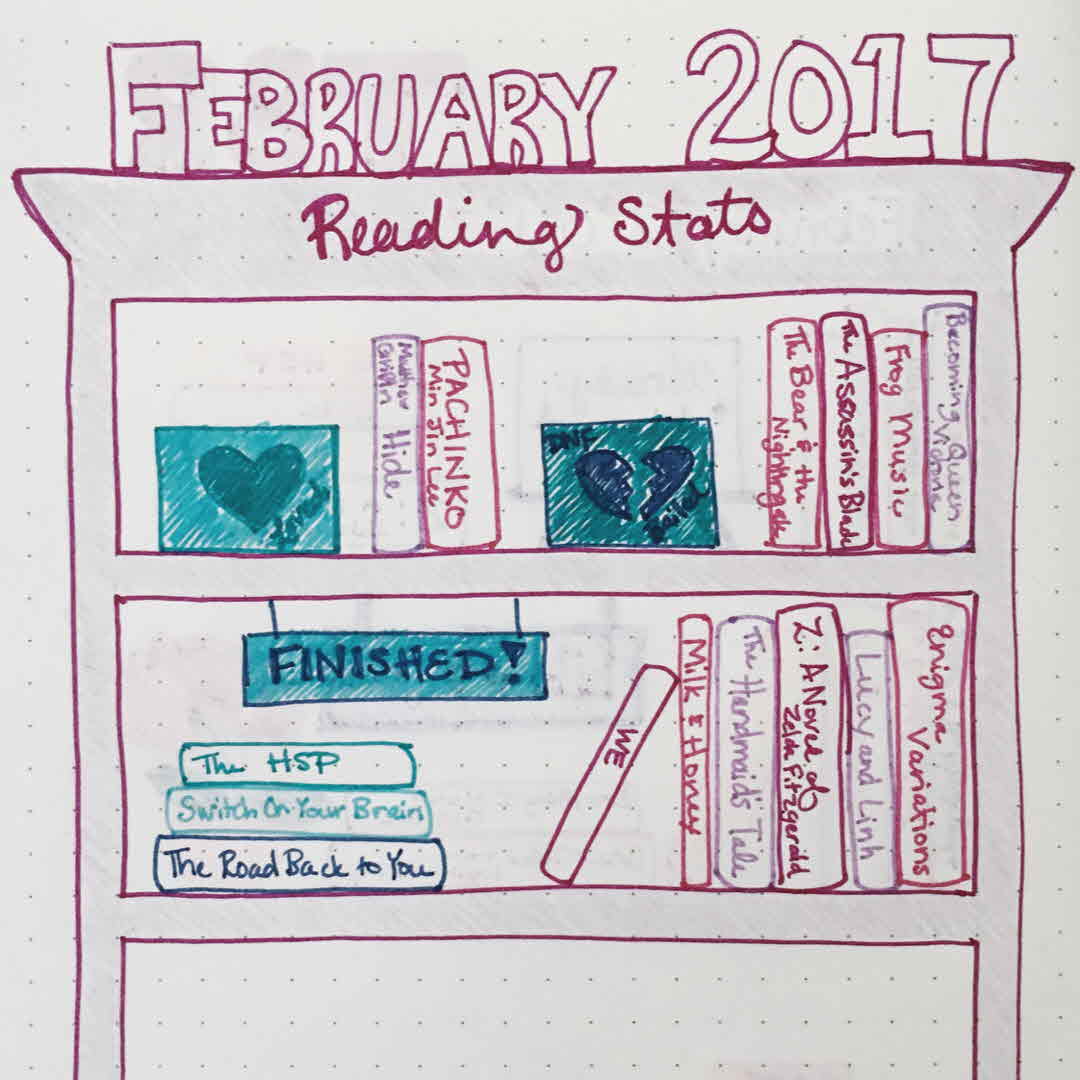 FEBRUARY 2017
Reading Stats
Loved
Hide
PACHINKO
Min Jin Lee
DNF
Failed
The Bear & the
Nightingale
The Assassin's Blade
Frog Music
Becoming Queen
Victoria
FINISHED!
The HSP
Switch On Your Brain
The Road Back to You
WE
Milk & Honey
The Handmaid's Tale
Z: A Novel of
Zelda Fitzgerald
Lucy and Linh
Enigma
Variations